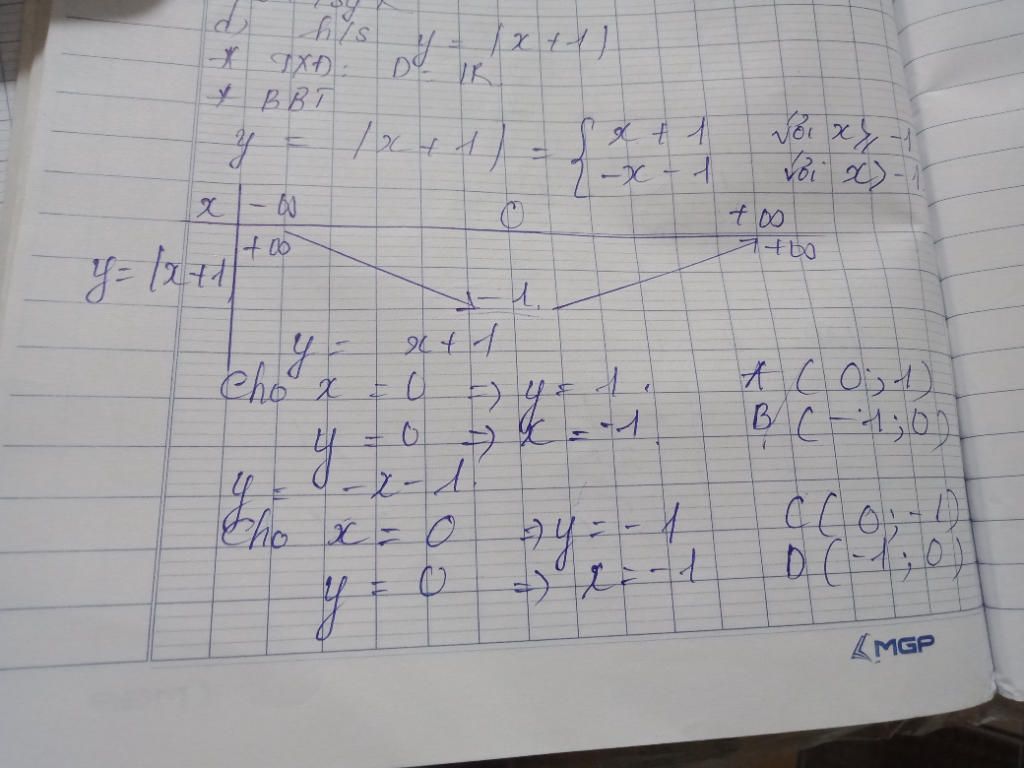 d) h/s y = |x + 1|
* TXĐ: D = IR
* BBT
y = |x + 1| = { x + 1 với x ≥ -1
-x - 1 với x > -1
x -∞ 0 +∞
y = |x+1 +∞ -1. +∞
y = x + 1
Cho x = 0 => y = 1. A (0; 1)
y = 0 => x = -1. B (-1; 0)
y = -x - 1.
Cho x = 0 => y = -1 C (0; -1)
y = 0 => x = -1 D (-1; 0)
MGP